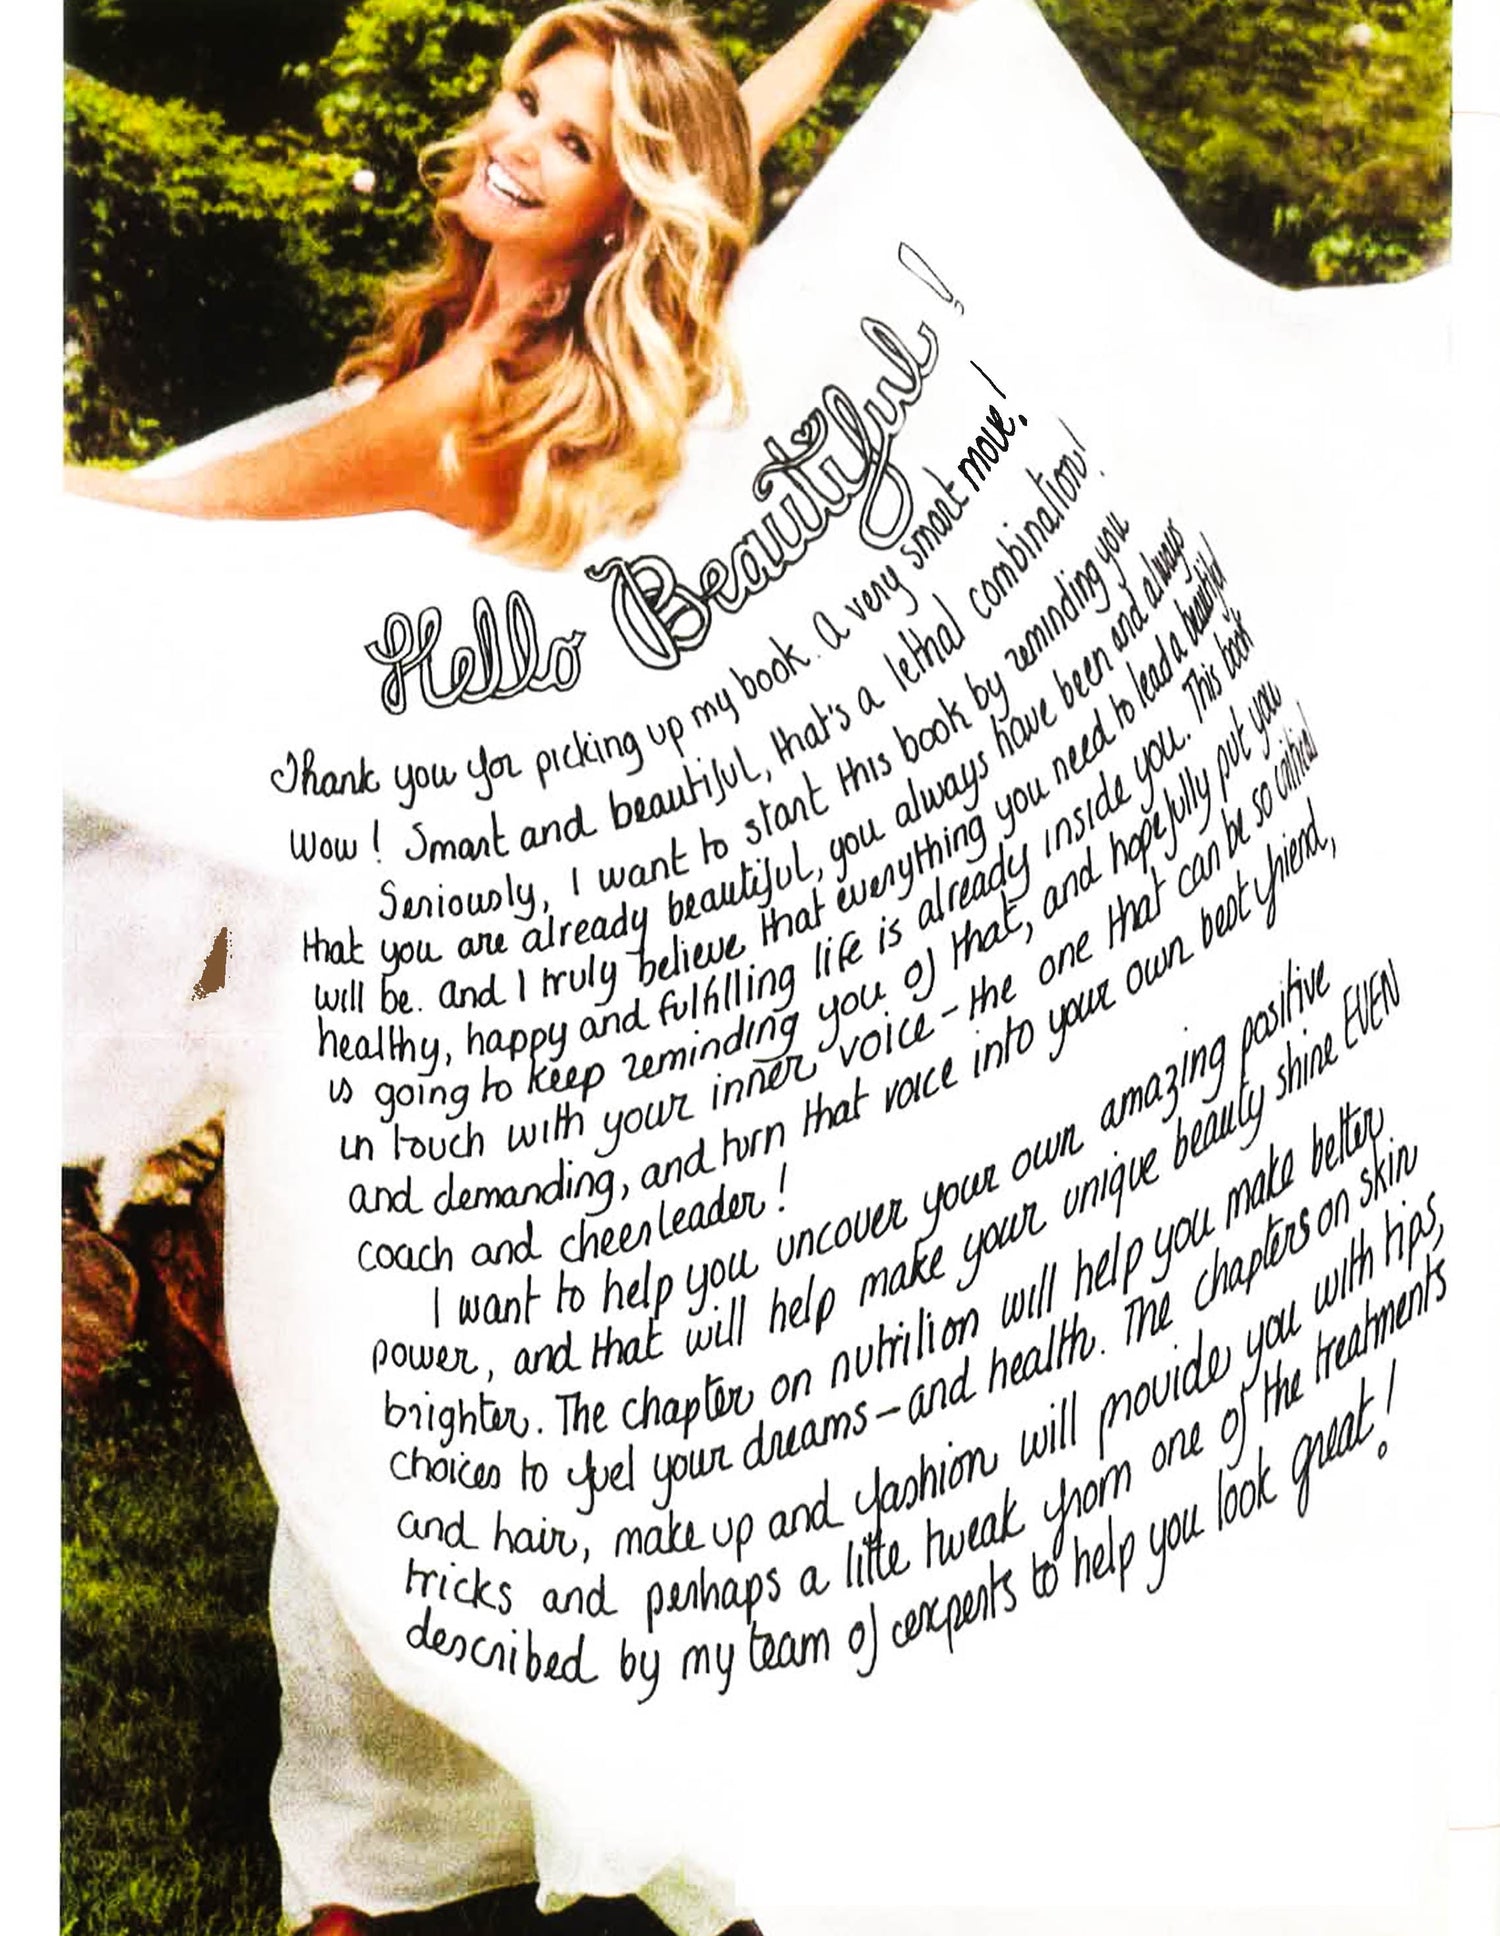 Hello Beautiful!
Thank you for picking up my book. A very smart move!
Wow! Smart and beautiful, that's a lethal combination!
Seriously, I want to start this book by reminding you
that you are already beautiful, you always have been and always
will be. And I truly believe that everything you need to lead a beautiful
healthy, happy and fulfilling life is already inside you. This book
is going to keep reminding you of that, and hopefully put you
in touch with your inner voice - the one that can be so critical
and demanding, and turn that voice into your own best friend,
coach and cheerleader!
I want to help you uncover your own amazing positive
power, and that will help make your unique beauty shine EVEN
brighter. The chapter on nutrition will help you make better
choices to fuel your dreams - and health. The chapters on skin
and hair, make up and fashion will provide you with tips,
tricks and perhaps a little tweak from one of the treatments
described by my team of experts to help you look great!